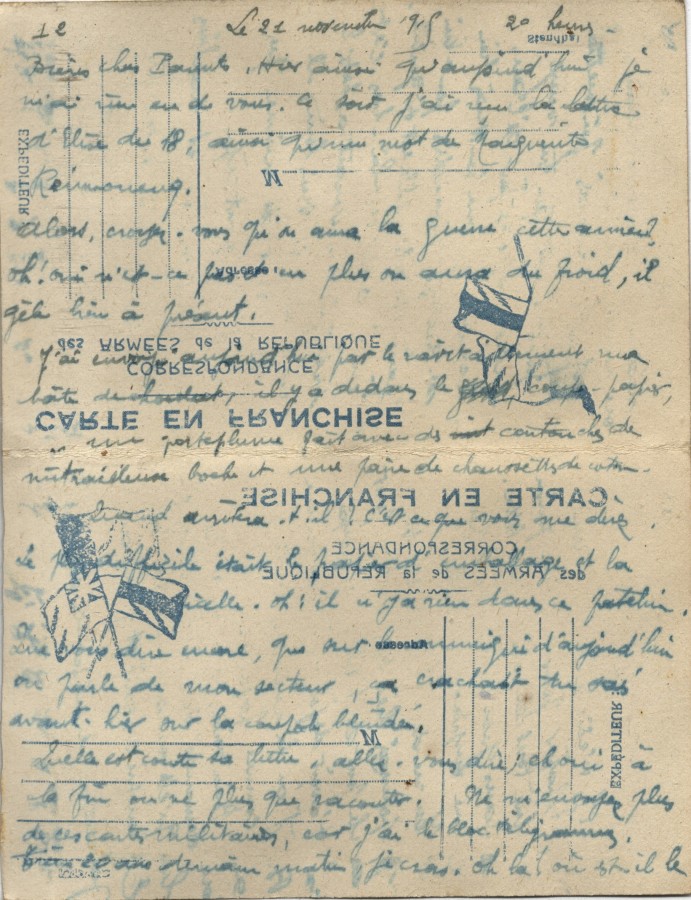 12 Le 21 novembre 1915 20 heures
Biens chers Parents, Hier ainsi qu'aujourd'hui je
n'ai rien eu de vous. Ce soir j'ai reçu la lettre
d'Elise du 18, ainsi qu'un mot de Marguerite
Alors, croyez-vous qu'on aura la guerre cette année,
oh! oui n'est-ce pas et en plus on aura du froid, il
gèle bien à présent.
J'ai envoyé aujourd'hui par le ravitaillement une
boîte de chocolat, il y a dedans le coupe-papier,
un porteplume fait avec des cartouches de
mitrailleuse boche et une paire de chaussettes de coton.
Quand arrivera-t-il? C'est ce que vous me direz.
Le plus difficile était l'emballage et la
ficelle. Oh! il n'y a rien dans ce patelin.
Que vous dire encore, que sur le communiqué d'aujourd'hui
on parle de mon secteur, ça crachait
avant-hier sur la coupole blindée.
Quelle est courte sa lettre, allez-vous dire; eh oui à
la fin on ne sait plus que raconter. Ne m'envoyez plus
de ces cartes militaires, car j'ai le bloc
20 ans demain matin, je crois. Oh la! où est-il le
Stendhal
EXPÉDITEUR
M
Adresse
des ARMÉES de la RÉPUBLIQUE
CORRESPONDANCE
CARTE EN FRANCHISE
CARTE EN FRANCHISE
CORRESPONDANCE
des ARMÉES de la RÉPUBLIQUE
Adresse
EXPÉDITEUR
M